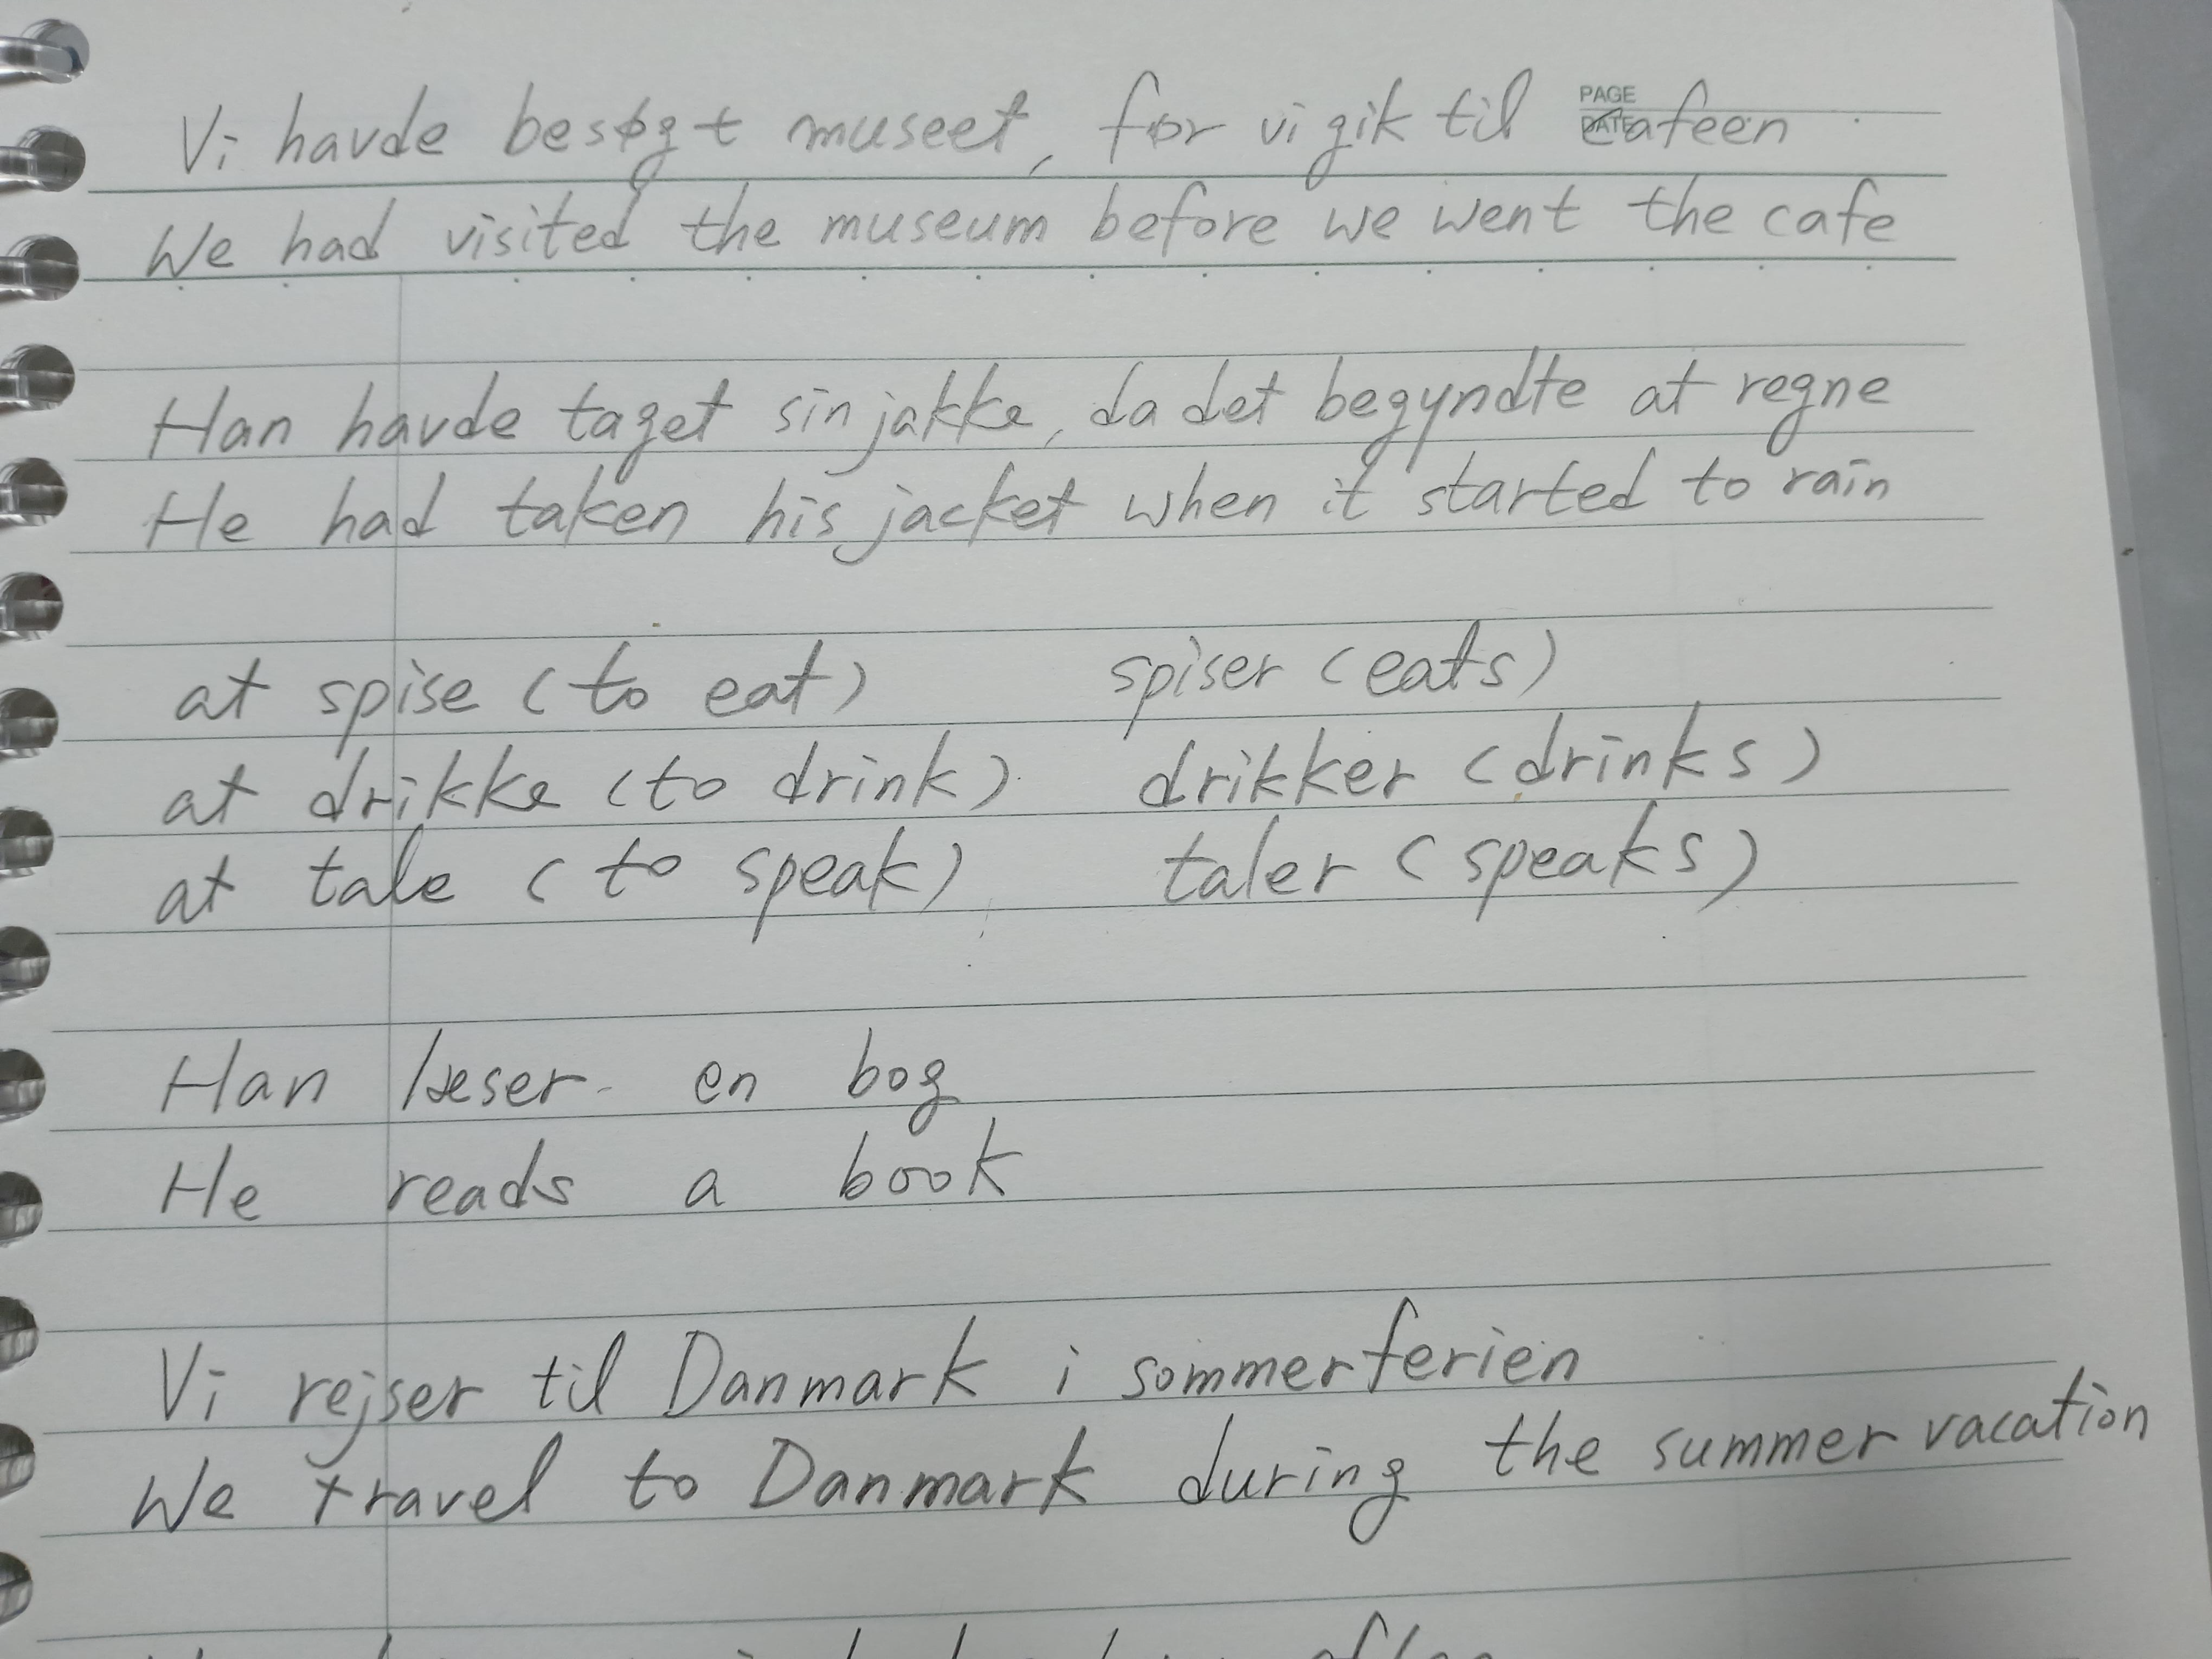 PAGE
DATE
Vi havde besøgt museet, før vi gik til cafeen
We had visited the museum before we went the cafe
Han havde taget sin jakke, da det begyndte at regne
He had taken his jacket when it started to rain
at spise (to eat) spiser (eats)
at drikke (to drink) drikker (drinks)
at tale (to speak) taler (speaks)
Han læser en bog
He reads a book
Vi rejser til Danmark i sommerferien
We travel to Danmark during the summer vacation